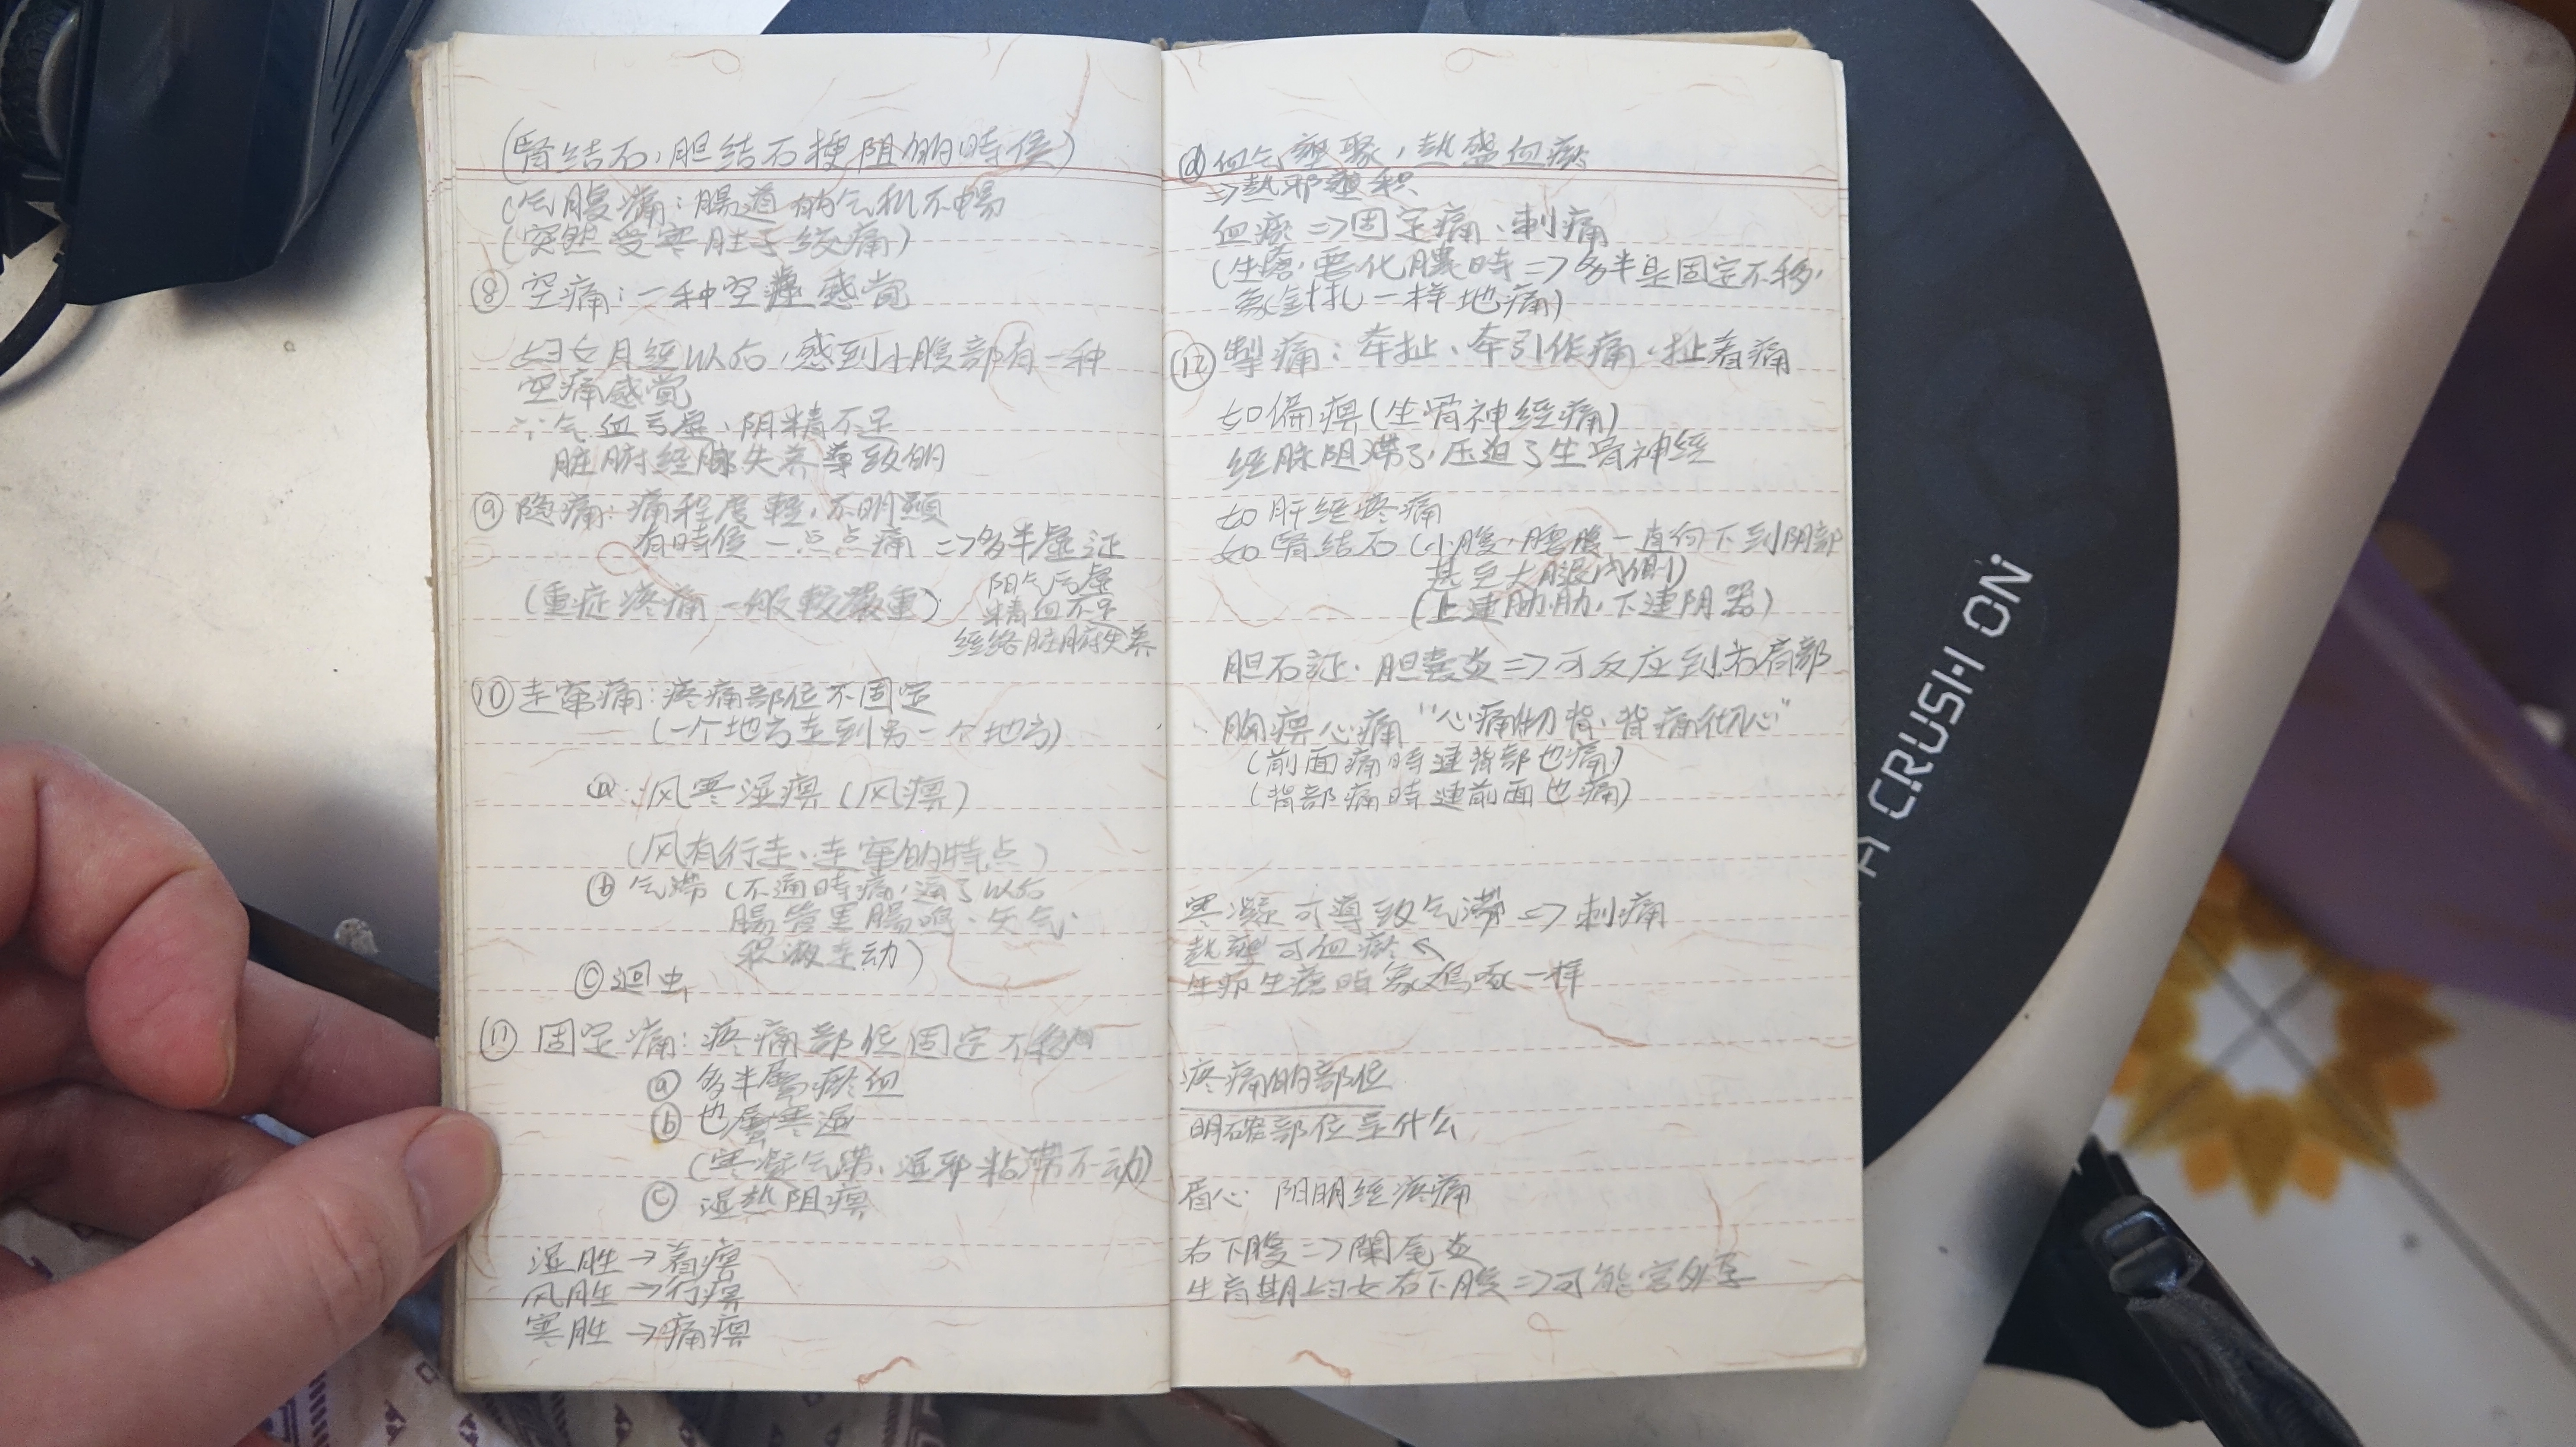 (腎结石,胆结石梗阻的時候)
(气腹痛:腸道的气机不畅
(突然受寒肚子绞痛)
⑧ 空痛:一种空虚感觉
妇女月经以后,感到小腹部有一种
空痛感觉
∵气血亏虚、阴精不足
脏腑经脉失养導致的
⑨ 隐痛:痛程度輕,不明顯
有時候一点点痛 => 多半虚证
(重症疼痛一般較嚴重)
阳气亏虚
精血不足
经络脏腑失养
⑩ 走窜痛:疼痛部位不固定
(一个地方走到另一个地方)
ⓐ 风寒湿痹(风痹)
(风有行走、走窜的特点)
ⓑ 气滞(不通時痛,通了以后
腸管里腸鳴、矢气
积液走动)
ⓒ 迴虫
⑪ 固定痛:疼痛部位固定不移
ⓐ 多半属瘀血
ⓑ 也属寒湿
(寒凝气滞、湿邪粘滞不动)
ⓒ 湿热阻痹
湿胜→着痹
风胜→行痹
寒胜→痛痹
ⓓ 血气壅聚,热盛血瘀
=>热邪壅积
血瘀=>固定痛、刺痛
(生瘡,要化膿時=>多半是固定不移,
象針扎一样地痛)
⑫ 掣痛:牵扯、牵引作痛、扯着痛
如偏痹(坐骨神经痛)
经脉阻滞了,压迫了坐骨神经
如肝经疼痛
如腎结石(小腹,腰腹一直向下到阴部
甚至大腿内側)
(上連肋肋,下連阴器)
胆石証、胆囊炎=>可反应到右肩部
胸痹心痛"心痛彻背、背痛彻心"
(前面痛時連背部也痛)
(背部痛時連前面也痛)
寒凝可導致气滞=>刺痛
热壅可血瘀↖
生疖生瘡時象鸡啄一样
疼痛的部位
明確部位是什么
眉心:阳明经疼痛
右下腹=>闌尾炎
生育期妇女右下腹=>可能宫外孕
A CRUSH ON